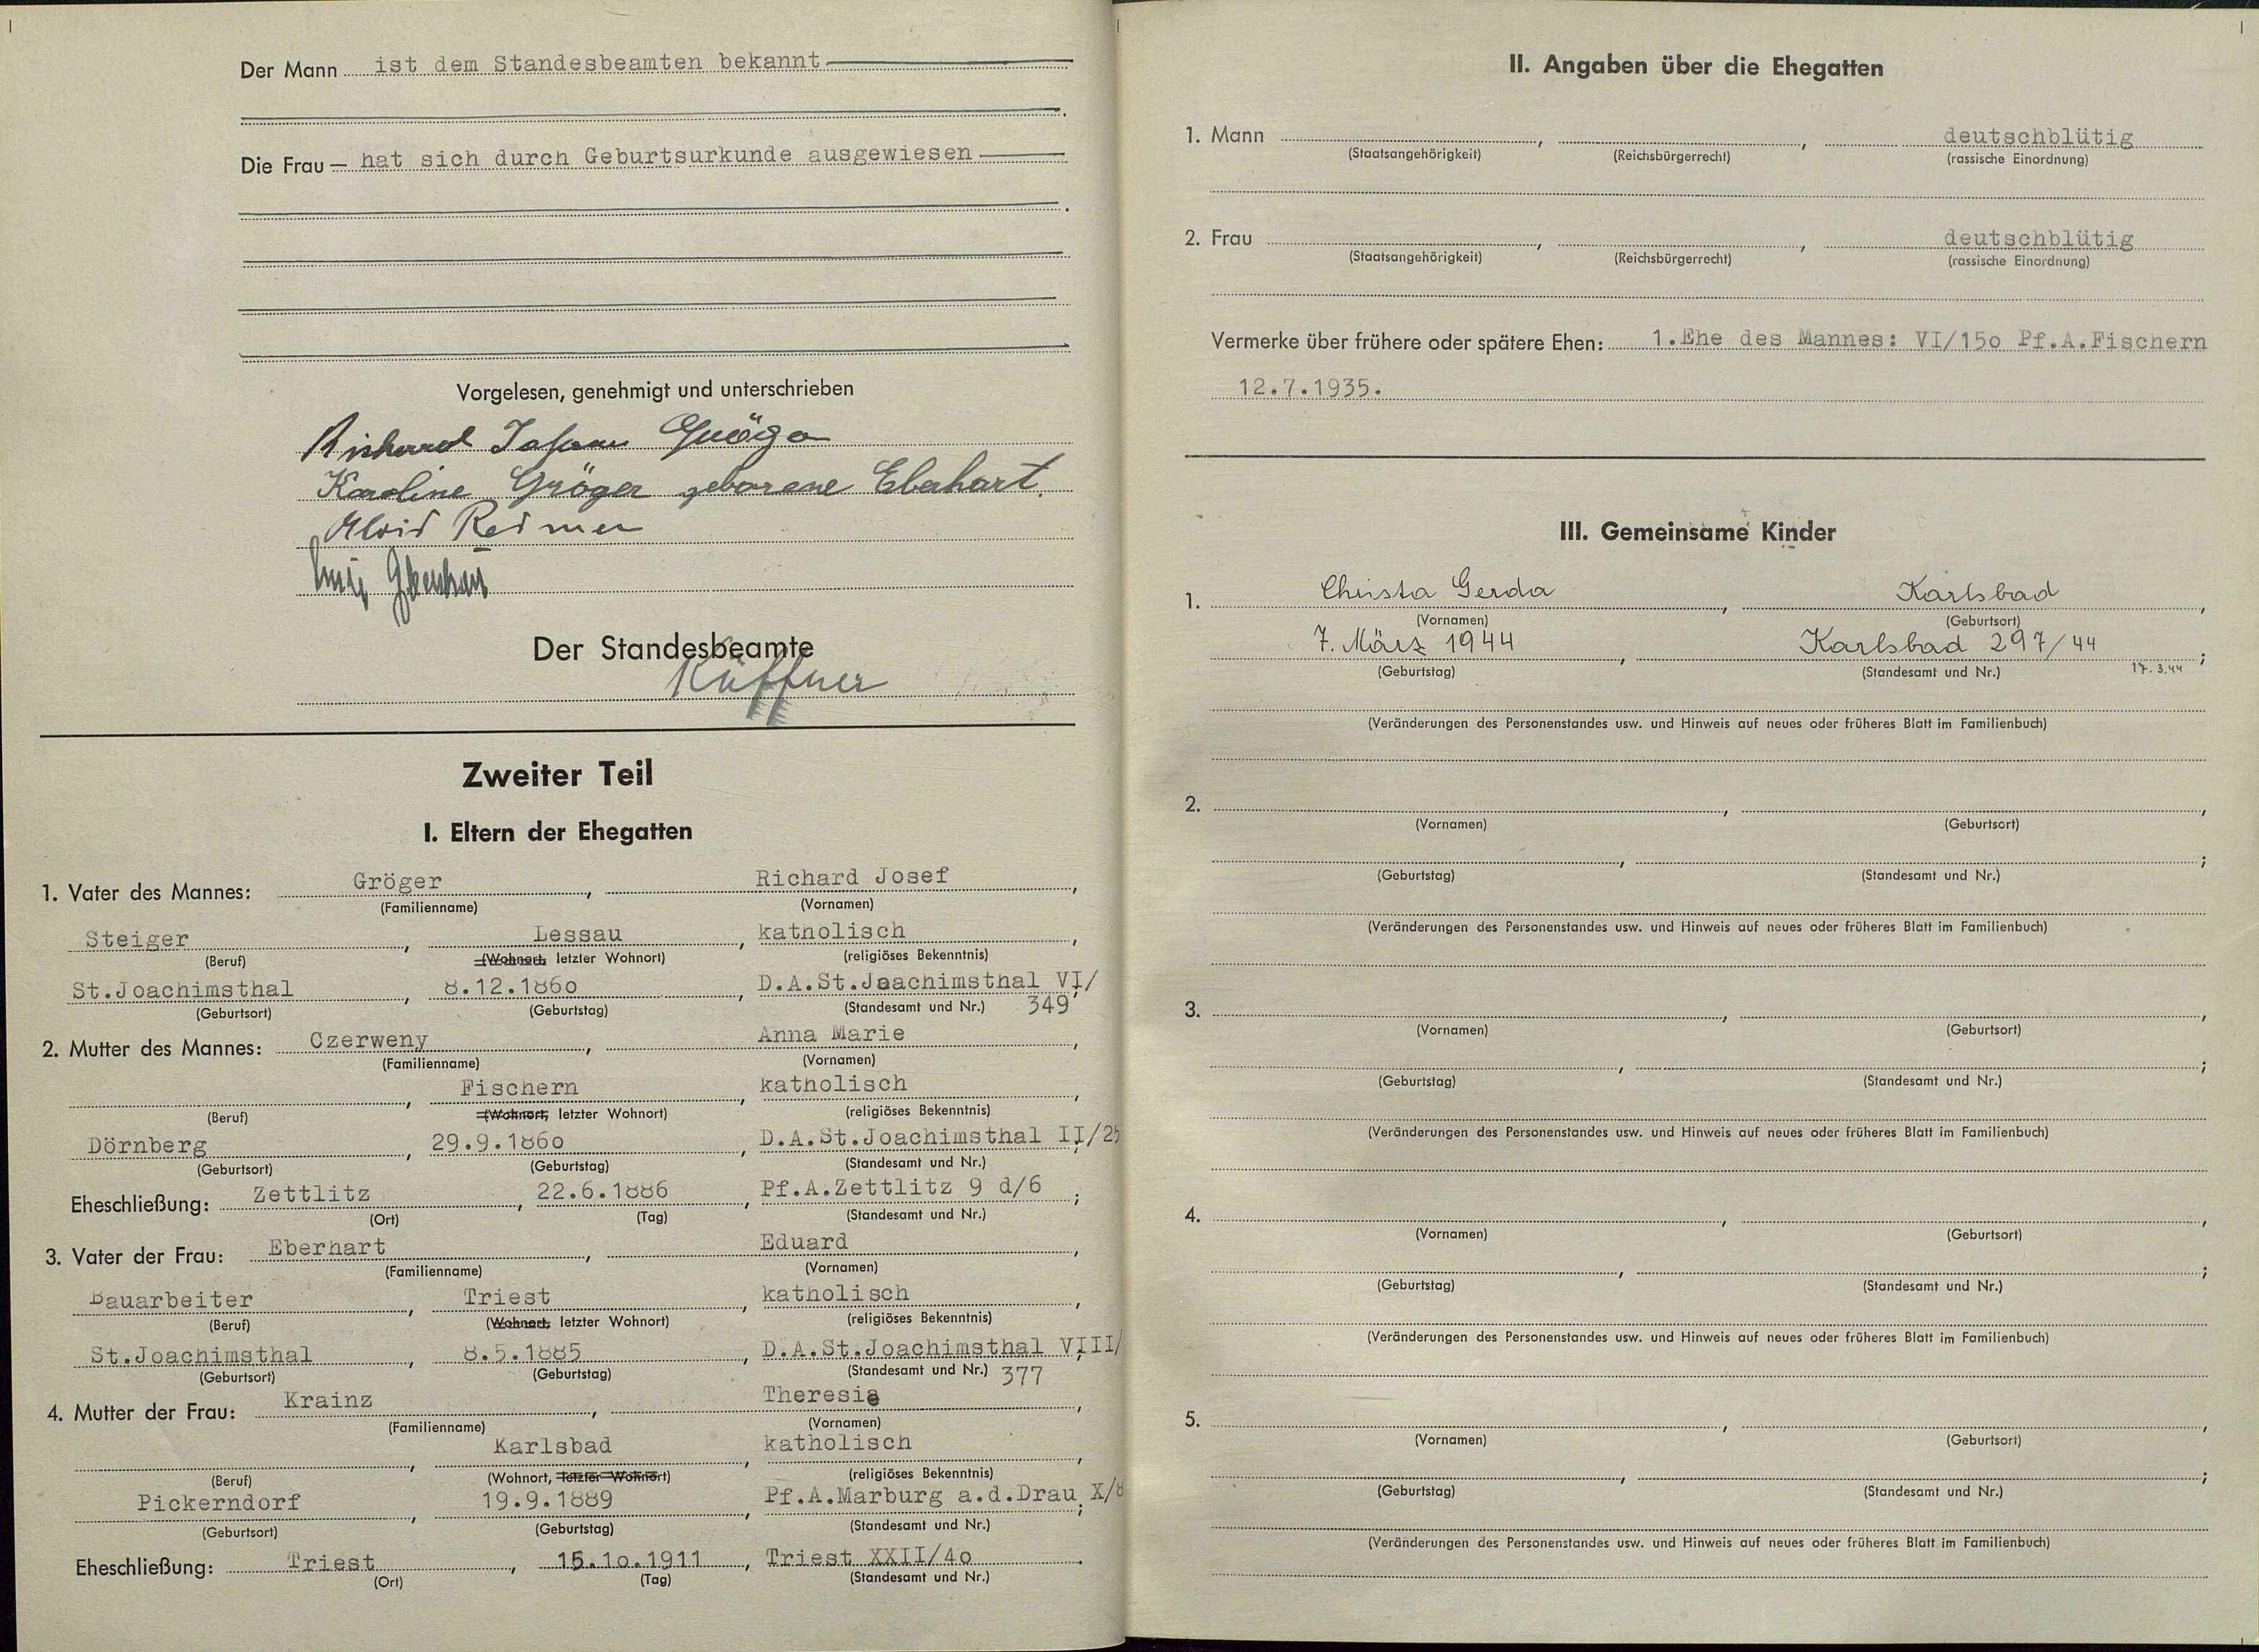 Der Mann ist dem Standesbeamten bekannt
Die Frau – hat sich durch Geburtsurkunde ausgewiesen
Vorgelesen, genehmigt und unterschrieben
Richard Gröger
Karoline Gröger geborene Eberhart.
Alois
Der Standesbeamte
Küffner
Zweiter Teil
I. Eltern der Ehegatten
1. Vater des Mannes: Gröger, Richard Josef,
(Familienname) (Vornamen)
Steiger, Lessau, katholisch,
(Beruf) (Wohnort, letzter Wohnort) (religiöses Bekenntnis)
St.Joachimsthal, 8.12.186o, D.A.St.Joachimsthal VI/
(Geburtsort) (Geburtstag) (Standesamt und Nr.) 349;
2. Mutter des Mannes: Czerweny, Anna Marie,
(Familienname) (Vornamen)
, Fischern, katholisch,
(Beruf) (Wohnort, letzter Wohnort) (religiöses Bekenntnis)
Dörnberg, 29.9.186o, D.A.St.Joachimsthal II/25;
(Geburtsort) (Geburtstag) (Standesamt und Nr.)
Eheschließung: Zettlitz, 22.6.1886, Pf.A.Zettlitz 9 d/6;
(Ort) (Tag) (Standesamt und Nr.)
3. Vater der Frau: Eberhart, Eduard,
(Familienname) (Vornamen)
Bauarbeiter, Triest, katholisch,
(Beruf) (Wohnort, letzter Wohnort) (religiöses Bekenntnis)
St.Joachimsthal, 8.5.1885, D.A.St.Joachimsthal VIII/;
(Geburtsort) (Geburtstag) (Standesamt und Nr.) 377
4. Mutter der Frau: Krainz, Theresie,
(Familienname) (Vornamen)
, Karlsbad, katholisch,
(Beruf) (Wohnort, letzter Wohnort) (religiöses Bekenntnis)
Pickerndorf, 19.9.1889, Pf.A.Marburg a.d.Drau X/8;
(Geburtsort) (Geburtstag) (Standesamt und Nr.)
Eheschließung: Triest, 15.1o.1911, Triest XXII/4o.
(Ort) (Tag) (Standesamt und Nr.)
II. Angaben über die Ehegatten
1. Mann , , deutschblütig
(Staatsangehörigkeit) (Reichsbürgerrecht) (rassische Einordnung)
2. Frau , , deutschblütig
(Staatsangehörigkeit) (Reichsbürgerrecht) (rassische Einordnung)
Vermerke über frühere oder spätere Ehen: 1.Ehe des Mannes: VI/15o Pf.A.Fischern
12.7.1935.
III. Gemeinsame Kinder
1. Christa Gerda, Karlsbad,
(Vornamen) (Geburtsort)
7. März 1944, Karlsbad 297/44;
(Geburtstag) (Standesamt und Nr.) 17.3.44
(Veränderungen des Personenstandes usw. und Hinweis auf neues oder früheres Blatt im Familienbuch)
2. , ,
(Vornamen) (Geburtsort)
, ;
(Geburtstag) (Standesamt und Nr.)
(Veränderungen des Personenstandes usw. und Hinweis auf neues oder früheres Blatt im Familienbuch)
3. , ,
(Vornamen) (Geburtsort)
, ;
(Geburtstag) (Standesamt und Nr.)
(Veränderungen des Personenstandes usw. und Hinweis auf neues oder früheres Blatt im Familienbuch)
4. , ,
(Vornamen) (Geburtsort)
, ;
(Geburtstag) (Standesamt und Nr.)
(Veränderungen des Personenstandes usw. und Hinweis auf neues oder früheres Blatt im Familienbuch)
5. , ,
(Vornamen) (Geburtsort)
, ;
(Geburtstag) (Standesamt und Nr.)
(Veränderungen des Personenstandes usw. und Hinweis auf neues oder früheres Blatt im Familienbuch)